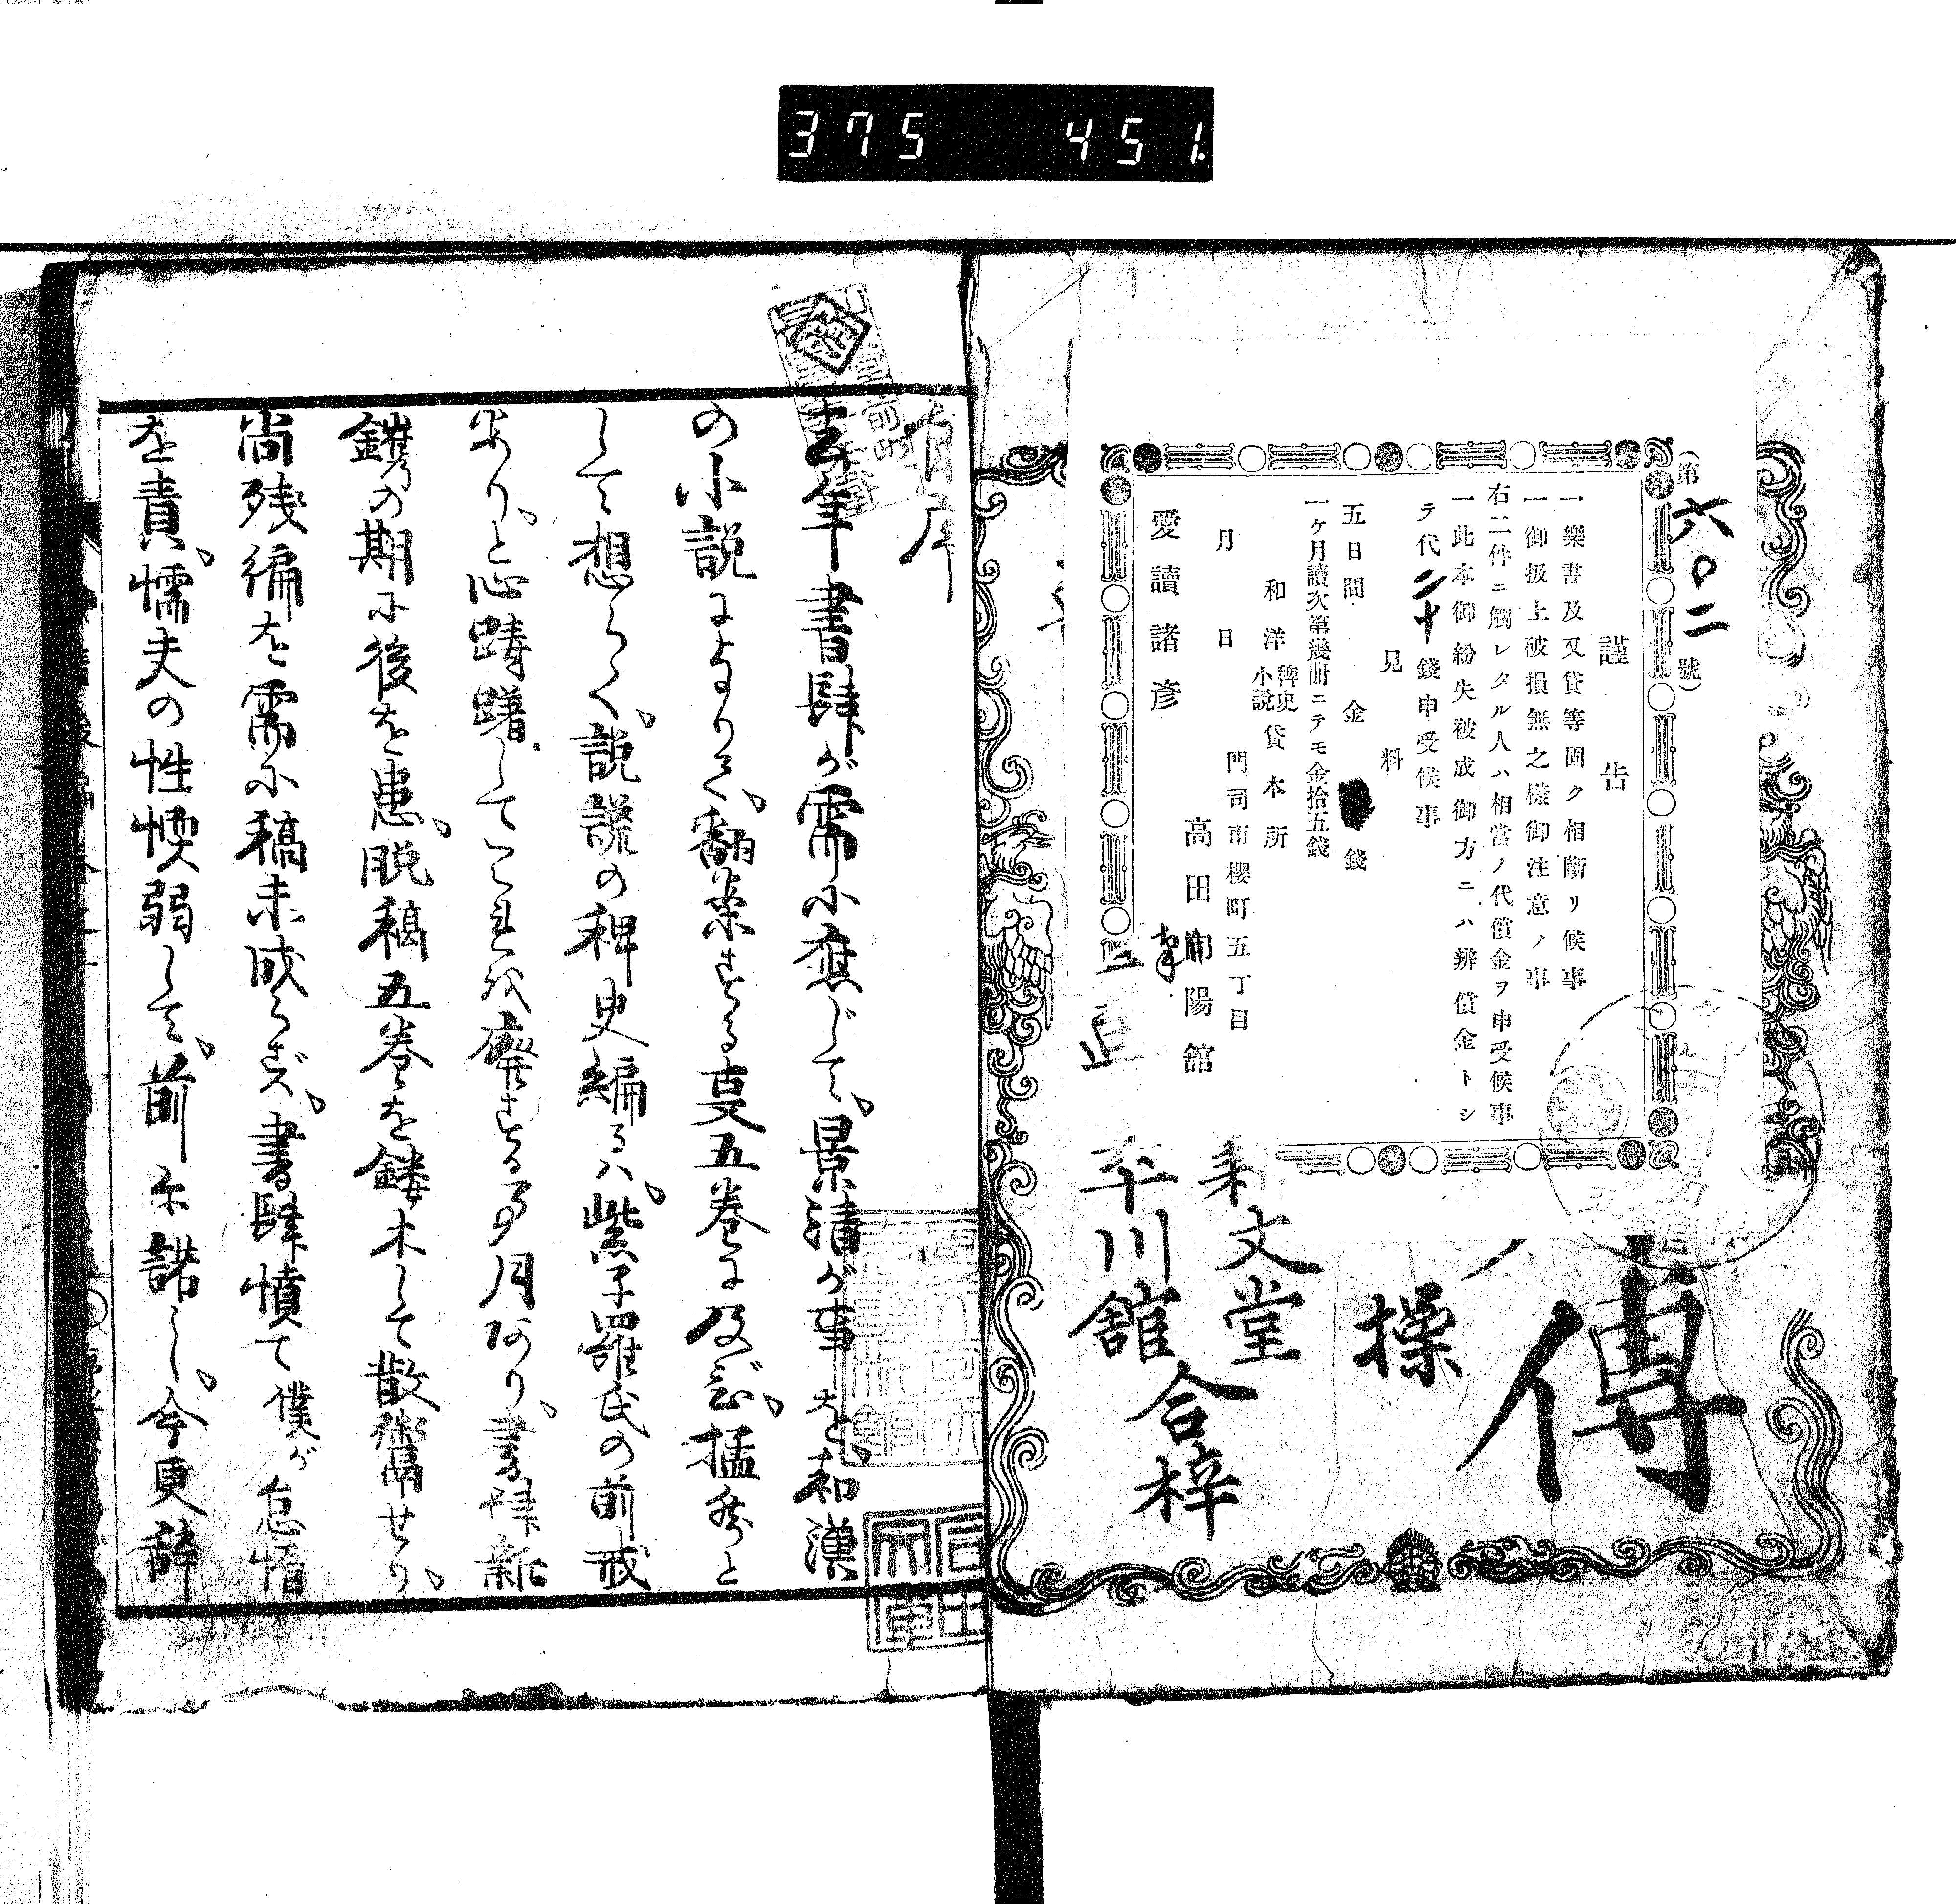 375 451
(第六〇二號)
謹告
一 樂書及又貸等固ク相斷リ候事
一 御扱上破損無之樣御注意ノ事
右二件ニ觸レタル人ハ相當ノ代償金ヲ申受候事
一 此本御紛失被成御方ニハ辨償金トシ
テ代二十錢申受候事
見料
五日間 金 錢
一ケ月讀次第幾冊ニテモ金拾五錢
和洋 稗史小說 貸本所
門司市櫻町五丁目
月 日
高田向陽館
愛讀諸彦
傳
操
文堂
平川館
合梓
自序
去年書肆が需に應じて、景清が事を、和漢
の小説によりて、翻案する亥五巻に及び、猛然と
して想らく、説謊の稗史編るハ、紫子羅氏の前戒
あり、と心躊躇してこれを廢する事月あり、書肆新
鐫の期に後を患、脱稿五巻を鏤木して散鬻せり、
尚残編を需に稿未成らず、書肆憤て僕が怠惰
を責、懦夫の性愞弱して、前に諾し、今更辭